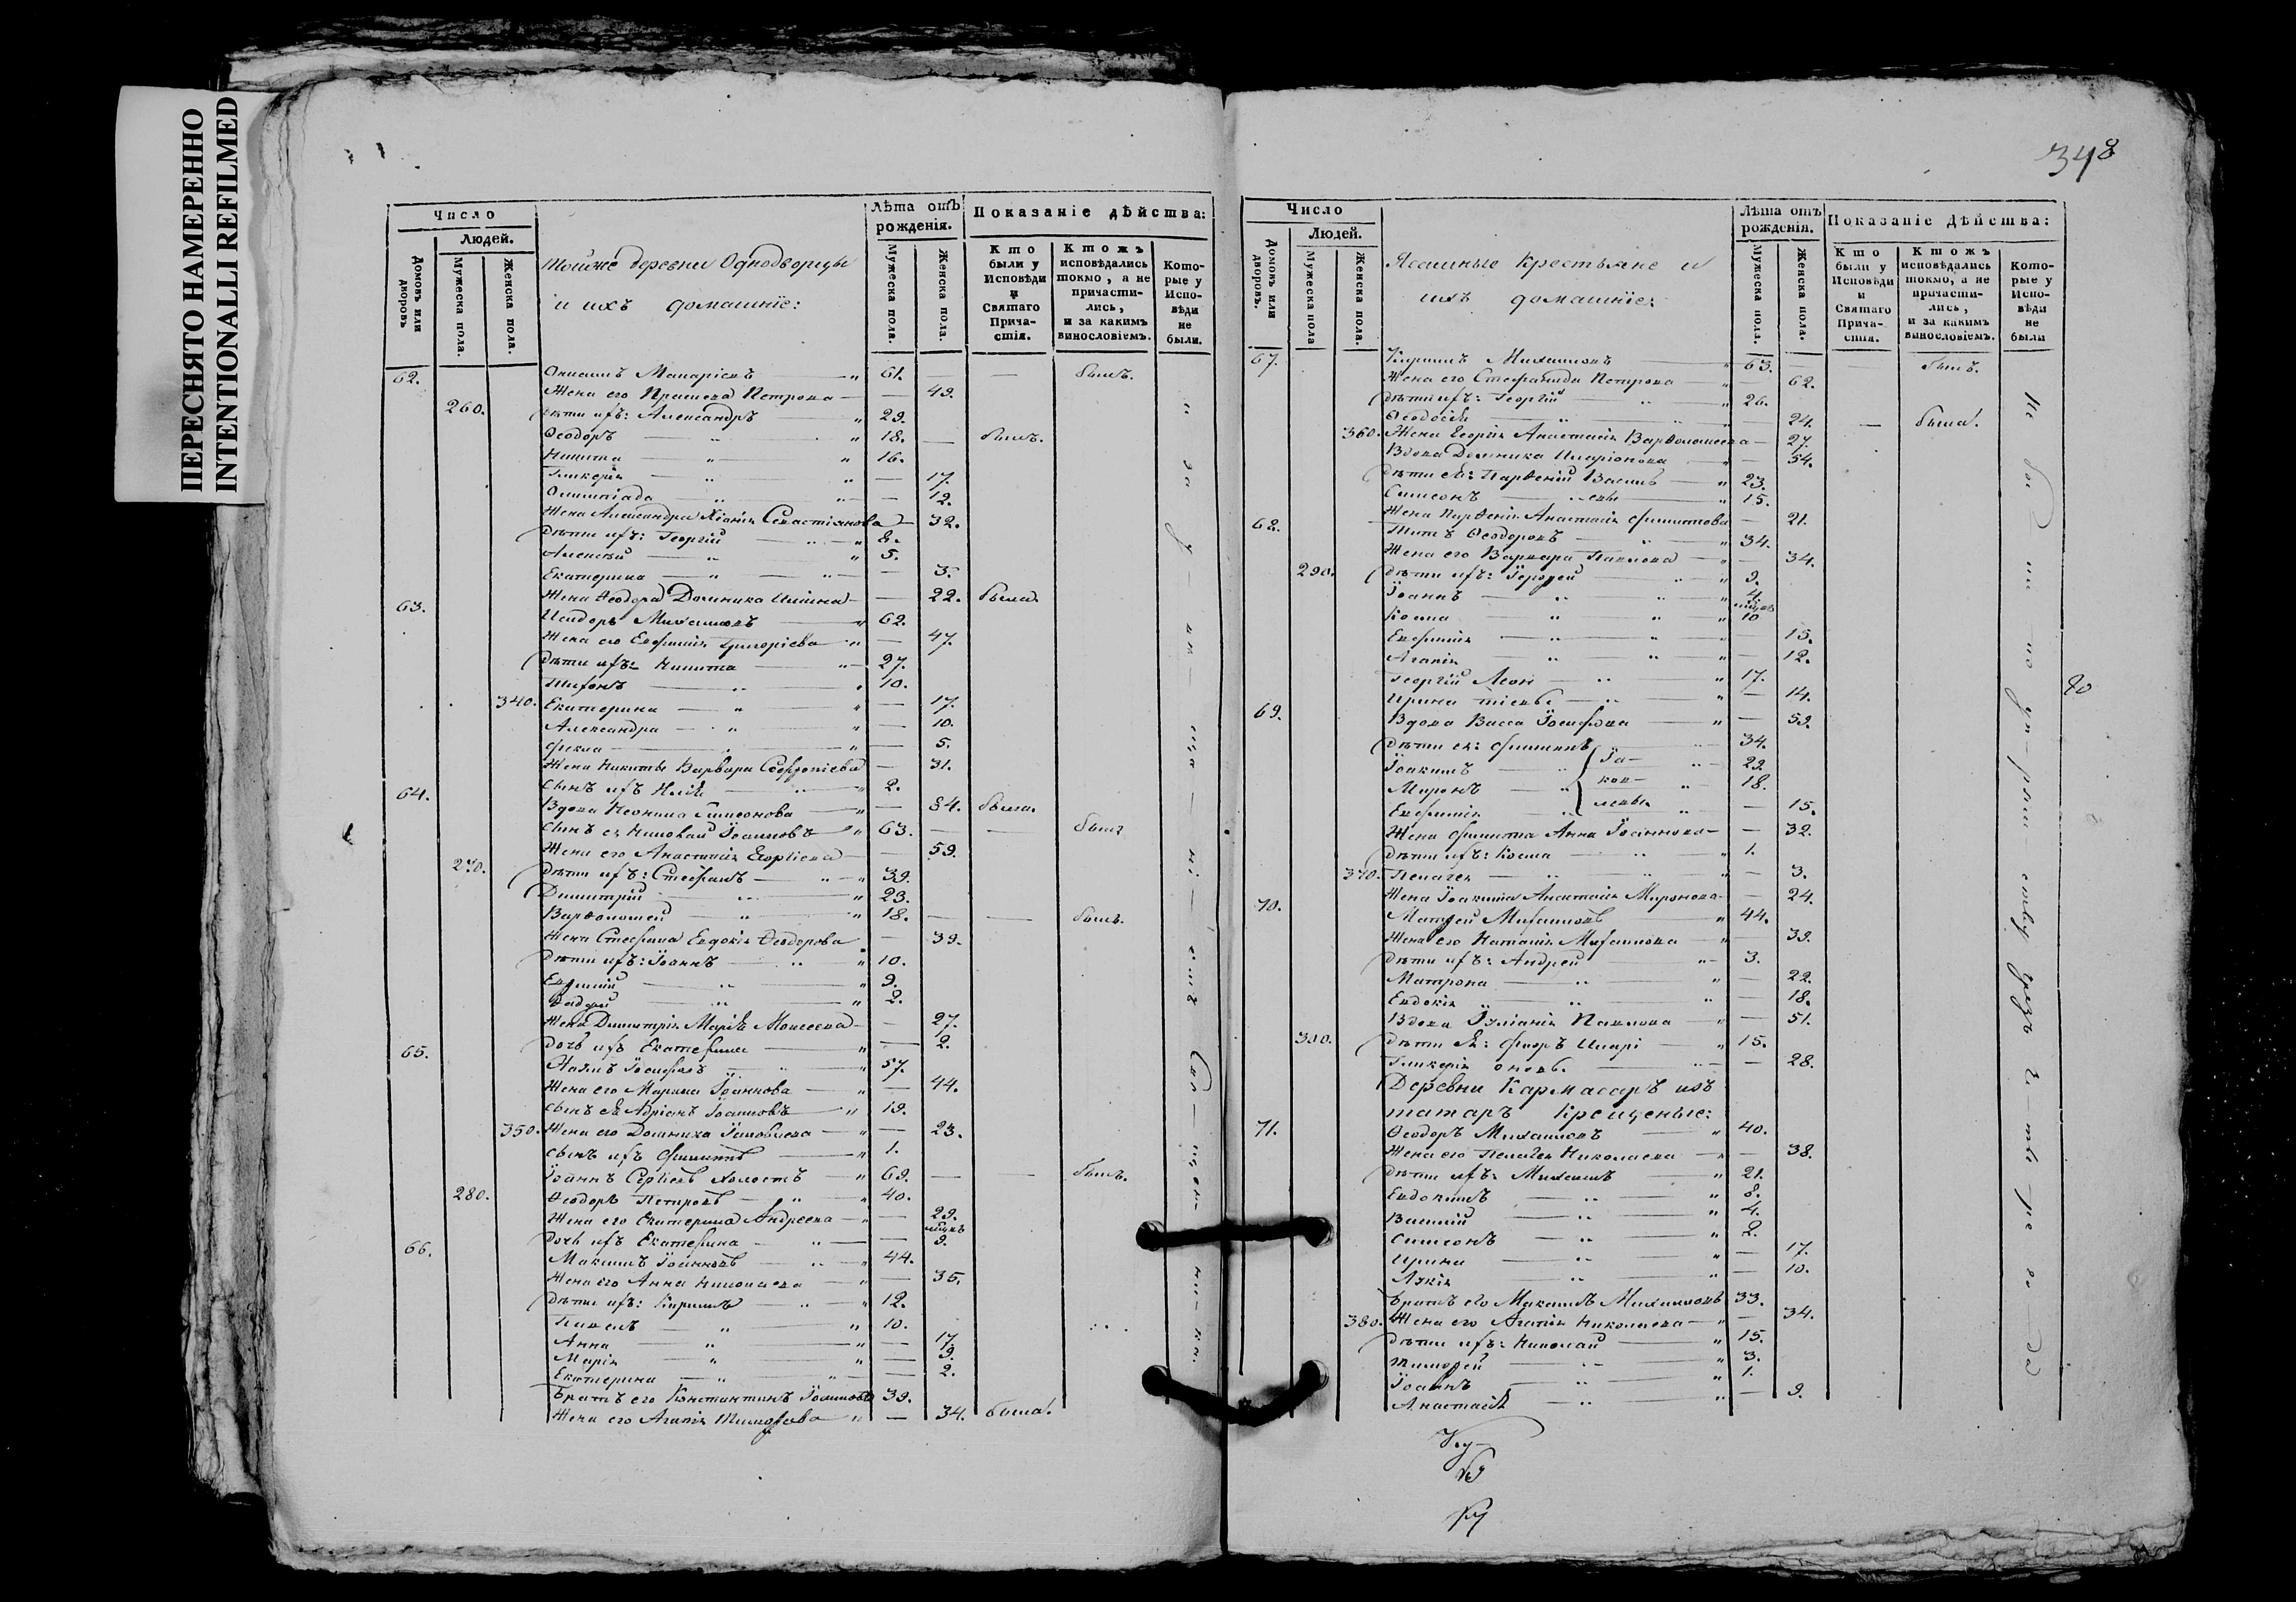 ПЕРЕСНЯТО НАМЕРЕННО
INTENTIONALLI REFILMED
Число
Людей.
Домовъ или дворовъ
Мужеска пола.
Женска пола.
Тойже деревни Однодворцы
и ихъ домашніе:
Лѣта отъ рожденія.
Мужеска пола.
Женска пола.
Показаніе дѣйства:
Кто были у Исповѣди и Святаго Прича-стія.
Ктожъ исповѣдались токмо, а не причасти-лись, и за какимъ винословіемъ.
Кото-рые у Испо-вѣди не были.
62. Макаріевъ 61. — — былъ.
Жена его Петрова — — 49.
260. дѣти ихъ: Александръ 29.
Ѳеодоръ 18. — былъ.
Никита 16.
Гликерія — 17.
Олимпіада — 12.
Жена Александра Севастіянова — 32.
Дѣти ихъ: Георгій 8.
Алексѣй 5.
Екатерина — 3.
Жена Ѳеодора Домника — 22. была
63. Исидоръ Михаиловъ 62.
Жена его Евфимія Григоріева — 47.
Дѣти ихъ: Никита 27.
Тихонъ 10.
340. Екатерина — 17.
Александра — 10.
Фекла — 5.
Жена Никиты Варвара — 31.
сынъ ихъ Илія 2.
64. Вдова Симеонова — 84. была.
сынъ ея Іоанновъ 63. — — былъ
Жена его Анастасія Георгіева — 59.
270. Дѣти ихъ: Стефанъ 39.
Димитрій 23.
Варѳоломей 18. — — былъ.
Жена Стефана Евдокія Ѳеодорова — 39.
Дѣти ихъ: Іоаннъ 10.
9.
2.
Жена Димитрія Марія Моисеева — 27.
Дочь ихъ Екатерина — 2.
65. Іосифовъ 57.
Жена его Марина Іоаннова — 44.
сынъ ея Адріанъ Іоанновъ 19.
350. Жена его Домника Іаковлева — 23.
сынъ ихъ Филиппъ 1.
Іоаннъ Сергіевъ холостъ 69. — — былъ.
280. Ѳеодоръ Петровъ 40.
Жена его Екатерина Андреева — 29.
Дочь ихъ Екатерина — 9.
66. Максимъ Іоанновъ 44.
Жена его Анна Николаева — 35.
Дѣти ихъ: Кириллъ 12.
Павелъ 10.
Анна — 17.
Марія — 9.
Екатерина — 2.
Братъ его Константинъ Іоанновъ 39.
Жена его Агапія Тимоѳеева — 34. была.
348
Число
Людей.
Домовъ или дворовъ.
Мужеска пола
Женска пола.
Ясашные Крестьяне и
ихъ домашніе:
Лѣта отъ рожденія.
Мужеска пола.
Женска пола.
Показаніе Дѣйства:
Кто были у Исповѣди и Святаго Прича-стія.
Ктожъ исповѣдались токмо, а не причасти-лись, и за какимъ винословіемъ.
Кото-рые у Испо-вѣди не были
67. Кириллъ Михаиловъ 63. — — былъ.
Жена его Стефанида Петрова — 62.
Дѣти ихъ: Георгій 26.
Ѳеодосія — 24. — была.
360. Жена Георгія Анастасія Варѳоломеева — 27.
Вдова Домника Иларіонова — 54.
Дѣти ея: Парѳеній Василь 23.
Симеонъ евы 15.
Жена Парѳенія Анастасія Филиппова — 21.
68. Титъ Ѳеодоровъ 34.
Жена его Варвара Павлова — 34.
290. Дѣти ихъ: 9.
Іоаннъ 4.
Косма 10
Евфимія — 15.
Агапія — 12.
Георгій Леон 17.
Ирина тіевы — 14.
69. Вдова Васса Іосифова — 59.
Дѣти ея: Филиппъ 34.
Іоакимъ Іа- 29.
Миронъ ков- 18.
Евфимія левы — 15.
Жена Филиппа Анна Іоаннова — 32.
Дѣти ихъ: Косма 1.
370. Пелагея — 3.
Жена Іоакима Анастасія Миронова — 24.
70. Матѳей Михаиловъ 44.
Жена его Наталія Михаилова — 39.
Дѣти ихъ: Андрей 3.
Матрона — 22.
Евдокія — 18.
Вдова Іуліанія Павлова — 51.
300. Дѣти ея: Флоръ Илари 15.
Гликерія оновы — 28.
Деревни Кармасаръ изъ
татаръ Крещеные:
71. Ѳеодоръ Михаиловъ 40.
Жена его Пелагея Николаева — 38.
Дѣти ихъ: Михаилъ 21.
Евдокимъ 8.
Василій 4.
Симеонъ 2.
Ирина — 17.
— 10.
Братъ его Максимъ Михаиловъ 33.
380. Жена его Агапія Николаева — 34.
Дѣти ихъ: Николай 15.
Тимоѳей 3.
Іоаннъ 1.
Анастасія — 9.